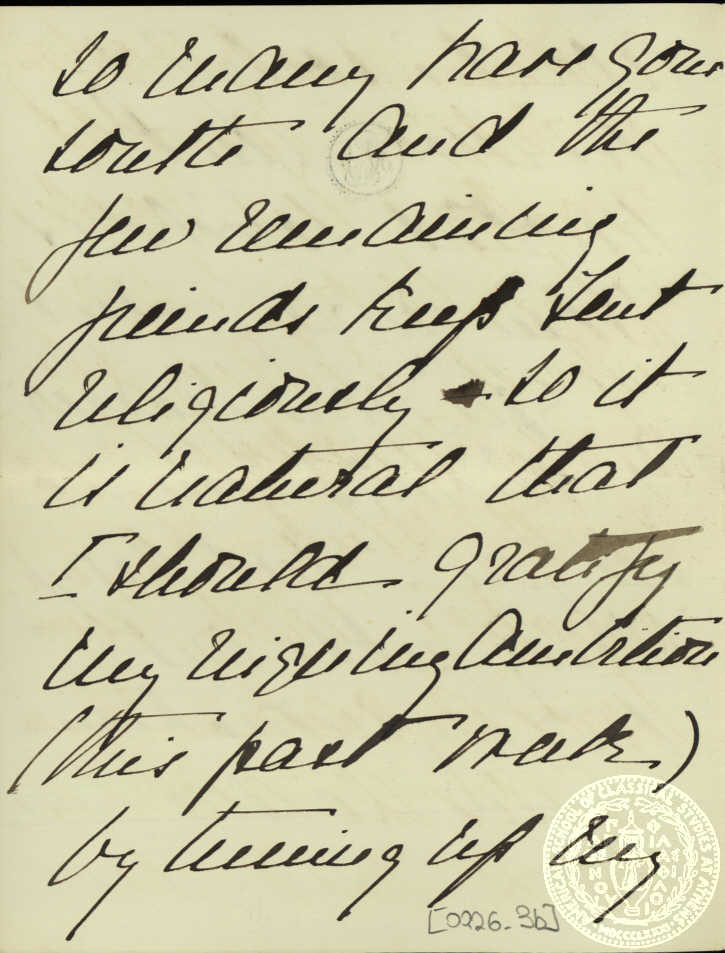 so many have gone
south and the
few remaining
friends keep Lent
religiously - so it
is natural that
I should gratify
my reigning ambition
(this past week)
by tuning up my
[0226-3b]
AMERICAN SCHOOL OF CLASSICAL STUDIES AT ATHENS
MDCCCLXXXI